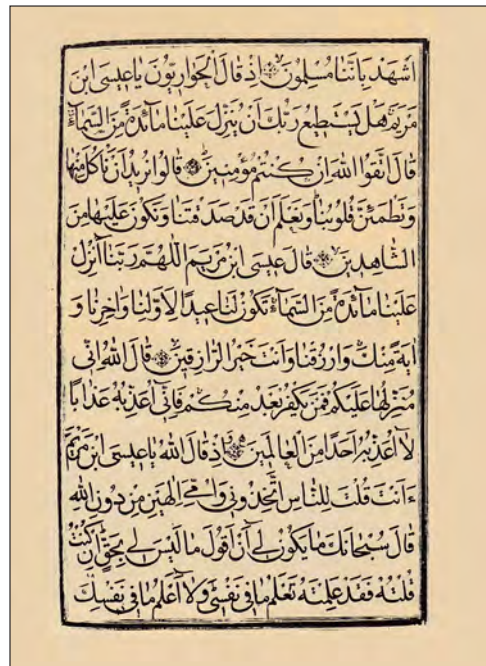 اشهد باننا مسلمون اذ قال الحواريون يا عيسى ابن
مريم هل يستطيع ربك ان ينزل علينا مائدة من السماء
قال اتقوا الله ان كنتم مؤمنين قالوا نريد ان نأكل منها
وتطمئن قلوبنا ونعلم ان قد صدقتنا ونكون عليها من
الشاهدين قال عيسى ابن مريم اللهم ربنا أنزل
علينا مائدة من السماء تكون لنا عيدا لاولنا واخرنا و
اية منك وارزقنا وانت خير الرازقين قال الله انى
منزلها عليكم فمن يكفر بعد منكم فاني أعذبه عذابا
لا أعذبه احدا من العالمين واذ قال الله يا عيسى ابن مريم
ءانت قلت للناس اتخذوني وامي الهين من دون الله
قال سبحانك ما يكون لي أن اقول ما ليس لي بحق ان كنت
قلته فقد علمته تعلم ما في نفسي ولا أعلم ما في نفسك